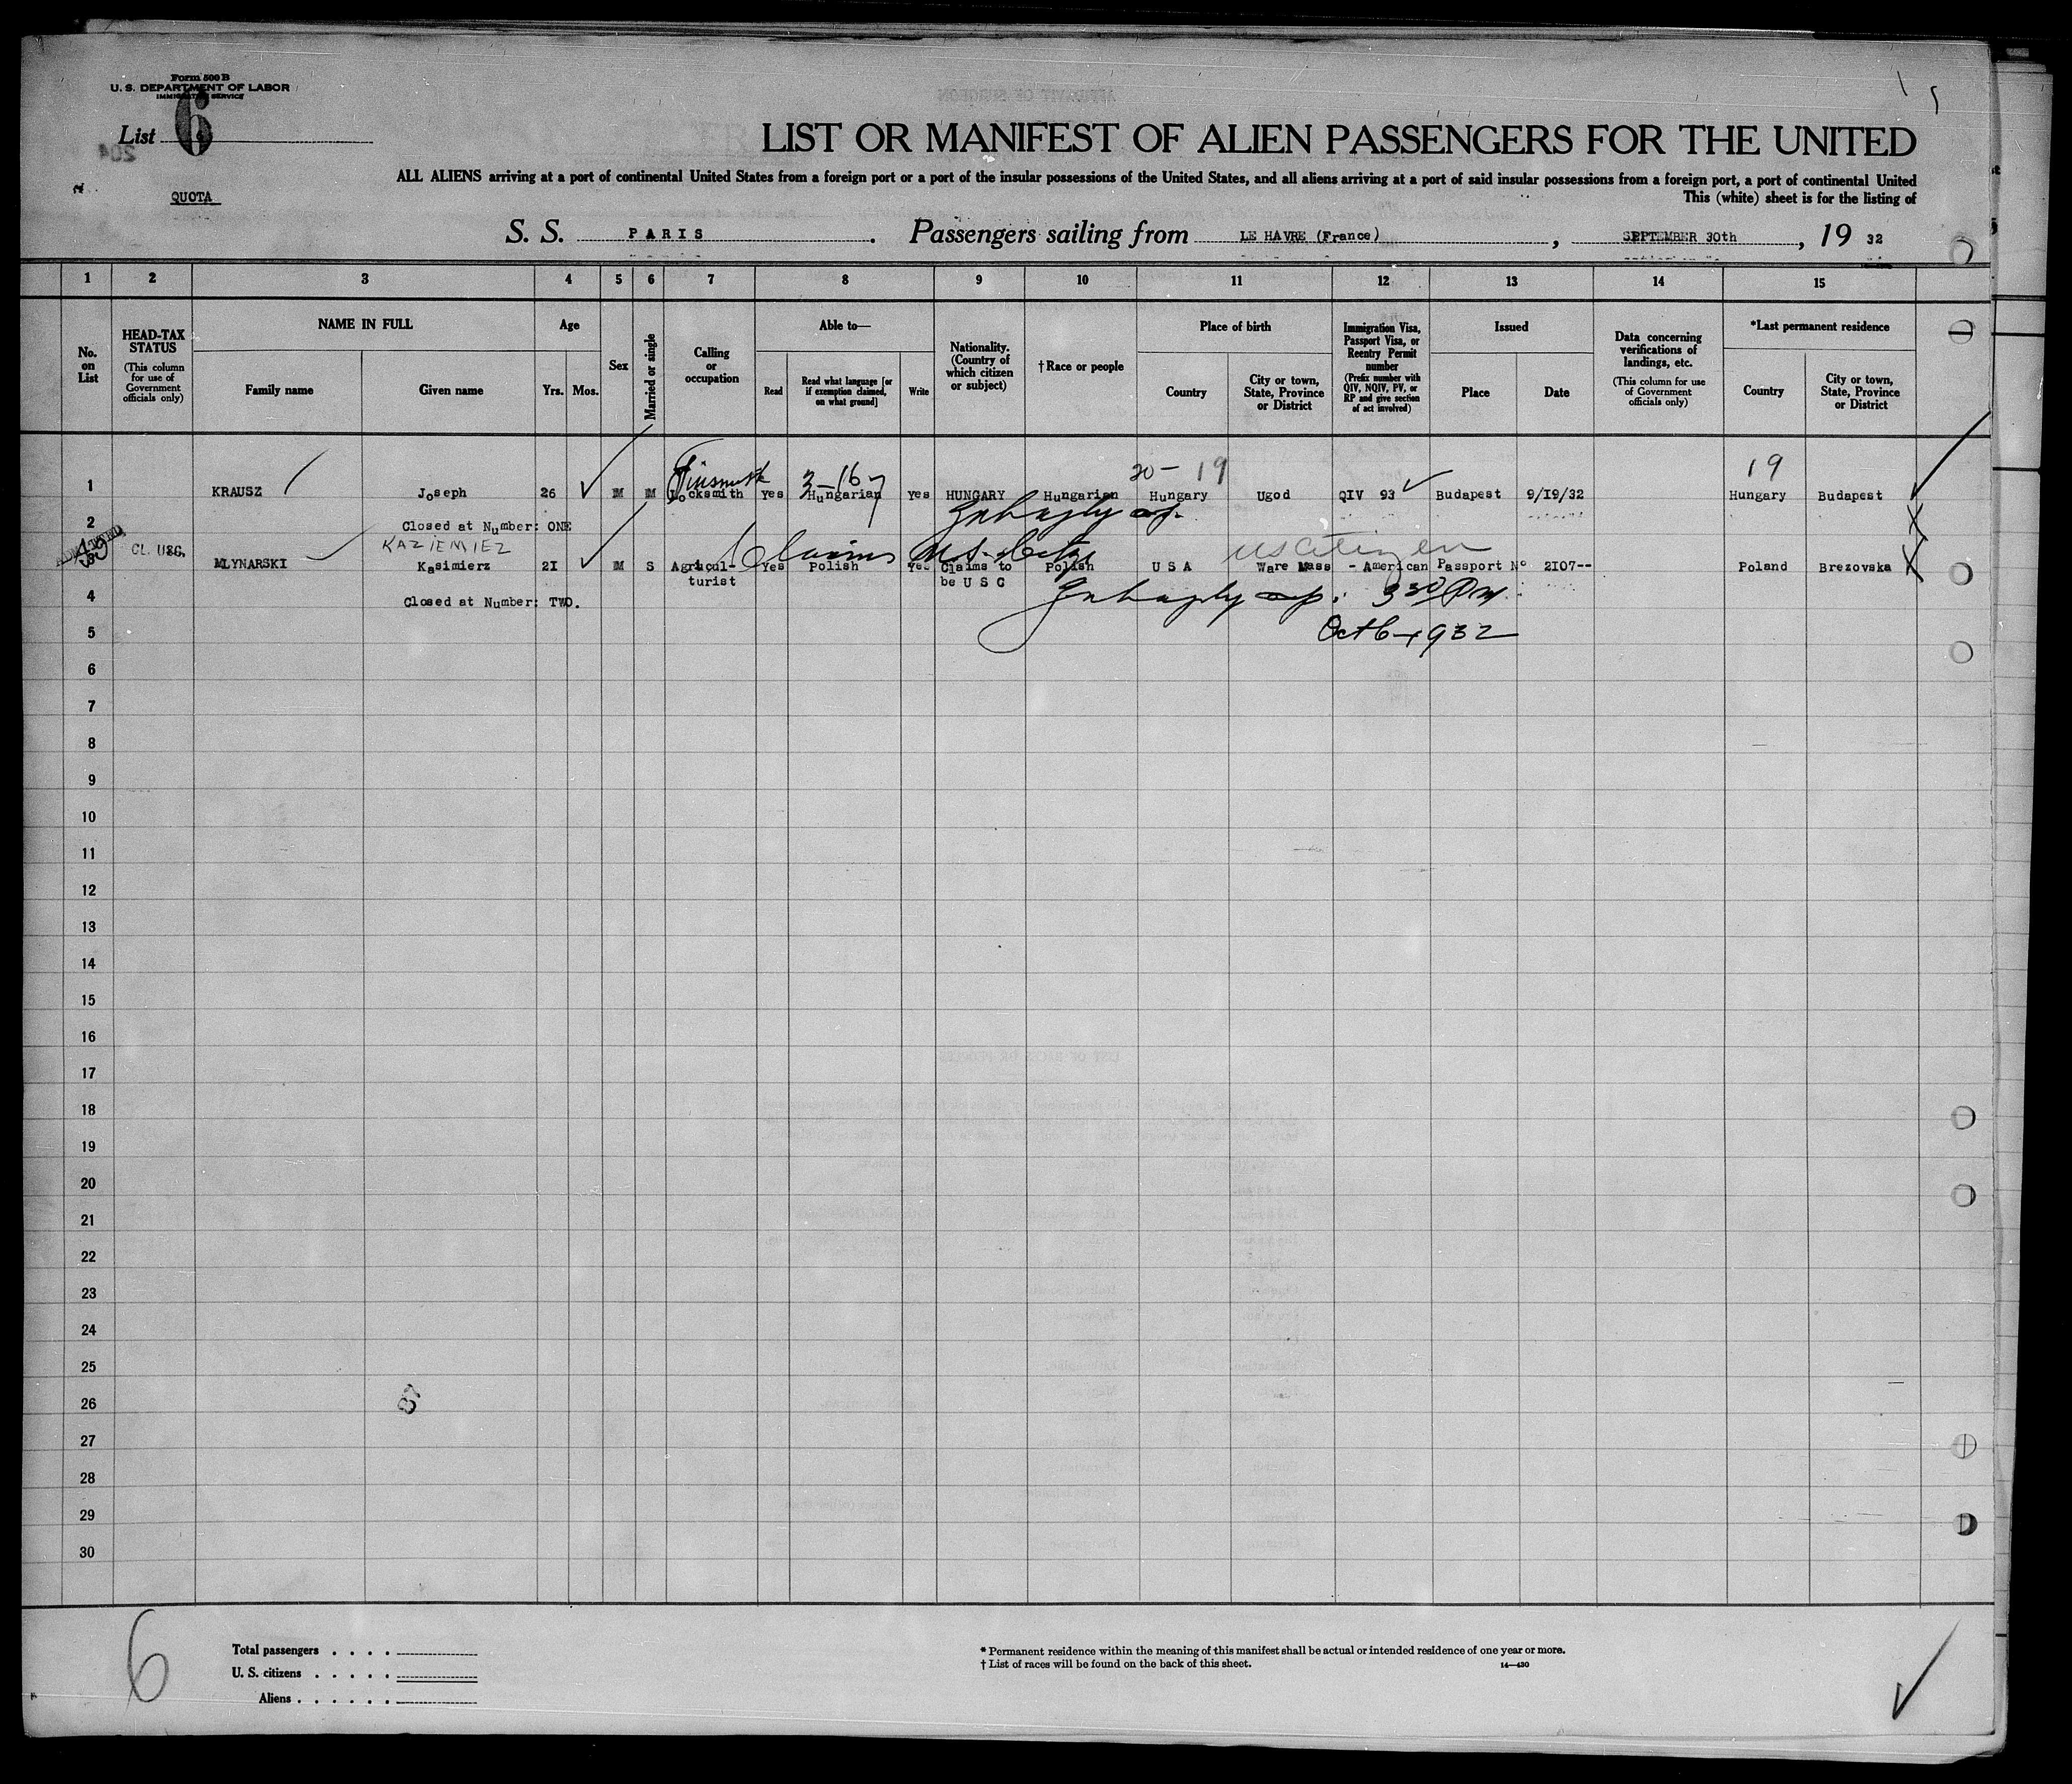 Form 500 B
U. S. DEPARTMENT OF LABOR
IMMIGRATION SERVICE
List 6
204
QUOTA
LIST OR MANIFEST OF ALIEN PASSENGERS FOR THE UNITED
ALL ALIENS arriving at a port of continental United States from a foreign port or a port of the insular possessions of the United States, and all aliens arriving at a port of said insular possessions from a foreign port, a port of continental United
This (white) sheet is for the listing of
S. S. PARIS. Passengers sailing from LE HAVRE (France), SEPTEMBER 30th, 19 32
1 2 3 4 5 6 7 8 9 10 11 12 13 14 15
No. on List
HEAD-TAX STATUS
(This column for use of Government officials only)
NAME IN FULL
Family name
Given name
Age
Yrs. Mos.
Sex
Married or single
Calling or occupation
Able to—
Read
Read what language [or if exemption claimed, on what ground]
Write
Nationality. (Country of which citizen or subject)
† Race or people
Place of birth
Country
City or town, State, Province or District
Immigration Visa, Passport Visa, or Reentry Permit number
(Prefix number with QIV, NQIV, PV, or RP and give section of act involved)
Issued
Place
Date
Data concerning verifications of landings, etc.
(This column for use of Government officials only)
*Last permanent residence
Country
City or town, State, Province or District
Tinsmith 3-167 20- 19 19
1 KRAUSZ Joseph 26 M M Locksmith Yes Hungarian Yes HUNGARY Hungarian Hungary Ugod QIV 93 Budapest 9/19/32 Hungary Budapest
2 Closed at Number: ONE
KAZIEMIEZ Claims U.S. US Citizen
CL. USC. MLYNARSKI Kasimierz 21 M S Agricul- Yes Polish Yes Claims to Polish U S A Ware Mass - American Passport No 2107-- Poland Brezovska
turist be U S C
4 Closed at Number: TWO. 3 30 PM
5 Oct 6-1932
6
7
8
9
10
11
12
13
14
15
16
17
18
19
20
21
22
23
24
25
26
27
28
29
30
6
Total passengers . . . .
U. S. citizens . . . . .
Aliens . . . . . .
* Permanent residence within the meaning of this manifest shall be actual or intended residence of one year or more.
† List of races will be found on the back of this sheet.
14—430